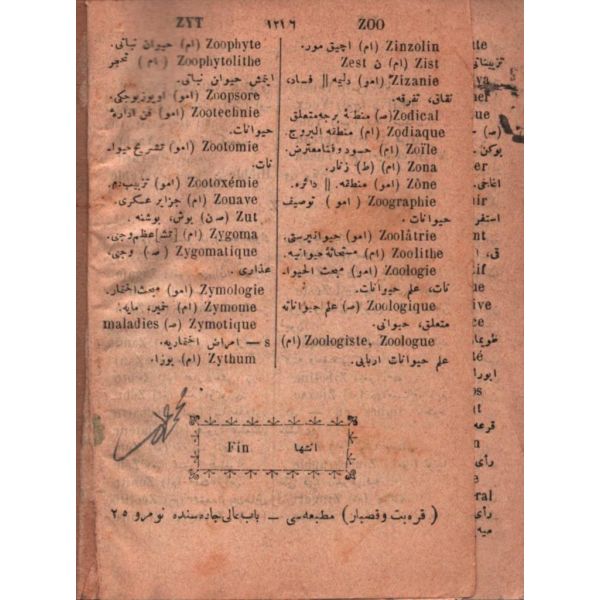 ZOO
١٢١٦
ZYT
Zinzolin (ام) آچيق مور.
Zist (ام) ن Zest
Zizanie (امو) دليه || فساد،
نفاق، تفرقه.
Zodical (ص) منطقهٔ برجه متعلق
Zodiaque (ام) منطقة البروج.
Zoïle (ام) حسود و فنا معترض.
Zona (ام) (ط) زنار.
Zône (امو) منطقه. || دائره.
Zoographie (امو) توصيف
حيوانات.
Zoolâtrie (امو) حيوانپرستى.
Zoolithe (ام) مستحاثهٔ حيوانيه.
Zoologie (امو) مبحث الحيوا-
نات، علم حيوانات.
Zoologique (ص) علم حيواناته
متعلق، حيوانى.
Zoologiste, Zoologue (ام)
علم حيوانات اربابى.
Zoophyte (ام) حيوان نباتى.
Zoophytolithe (ام) تحجر
ايتمش حيوان نباتى.
Zoopsore (امو) اويوز بوجكى.
Zootechnie (امو) فن ادارهٔ
حيوانات.
Zootomie (امو) تشريح حيوا-
نات.
Zootoxémie (امو) تزييب دم.
Zouave (ام) جزاير عسكرى.
Zut (ص ن) بوش، بوشنه.
Zygoma (ام) [تش] عظم وجى.
Zygomatique (ص) وجى،
عذارى.
Zymologie (امو) مبحث اختمار.
Zymome (ام) خمير، مايه.
Zymotique (ص) maladies
s — امراض اختماريه.
Zythum (ام) بوزا.
Fin انتها
(قره بت و قصبار) مطبعه سى — باب عالى جاده سنده نومرو ٢٥